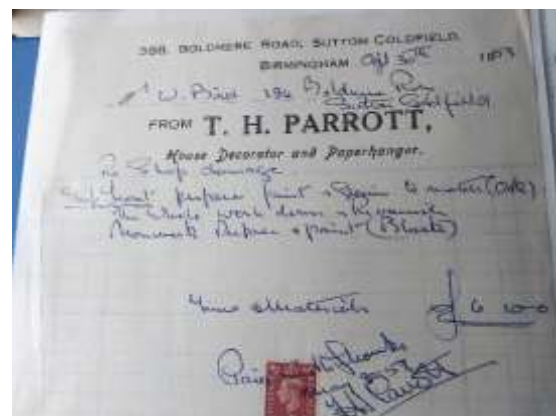 388, BOLDMERE ROAD, SUTTON COLDFIELD,
BIRMINGHAM 30th
W. Bird 186 Boldmere Rd
Sutton Coldfield
FROM T. H. PARROTT,
House Decorator and Paperhanger.
Re Shop damage
Shop front prepare paint & to match (Oak)
The whole work down & revarnish
prepare & paint (Black)
Time & Materials £6
Paid with Thanks
T H Parrott